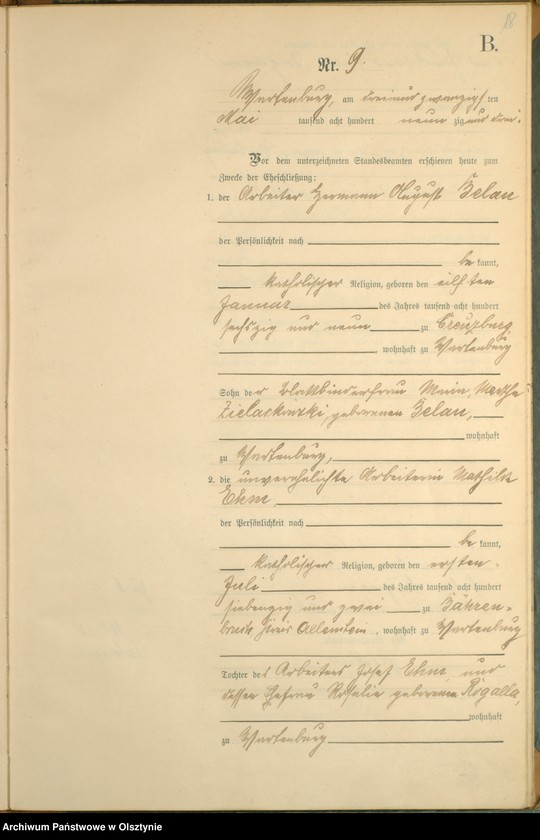 18
B.
Nr. 9.
Wartenburg, am dreiundzwanzigsten
Mai tausend acht hundert neunzig und drei.
Vor dem unterzeichneten Standesbeamten erschienen heute zum
Zwecke der Eheschließung:
1. der Arbeiter Hermann August Belau
der Persönlichkeit nach
be kannt,
katholischer Religion, geboren den eilften
Januar des Jahres tausend acht hundert
sechszig und neun zu Creuzburg
, wohnhaft zu Wartenburg
Sohn der Blattbinderfrau Martha
geborenen Belau,
wohnhaft
zu Wartenburg,
2. die unverehelichte Arbeiterin Mathilde
Ehm
der Persönlichkeit nach
be kannt,
katholischer Religion, geboren den ersten
Juli des Jahres tausend acht hundert
siebenzig und zwei zu Bähren-
bruch Kreis Allenstein, wohnhaft zu Wartenburg
Tochter des Arbeiters Josef Ehm und
dessen Ehefrau Rosalie geborenen Rogalla,
wohnhaft
zu Wartenburg
Archiwum Państwowe w Olsztynie